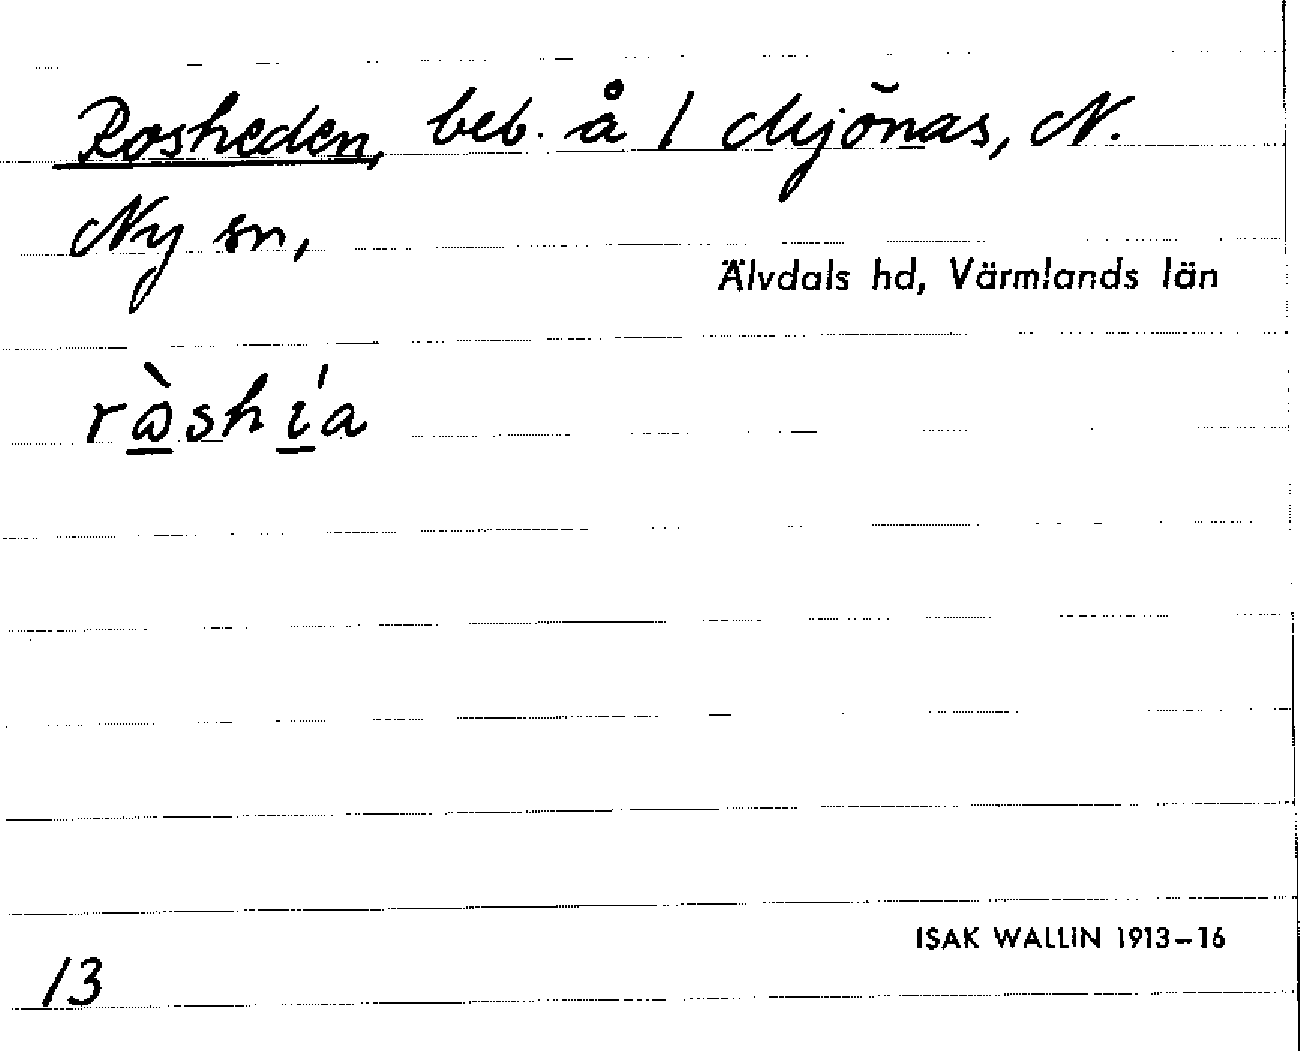 Rosheden, beb. å 1 Mjönäs, N.
Ny sn,
Älvdals hd, Värmlands län
ròshi'a
ISAK WALLIN 1913–16
13